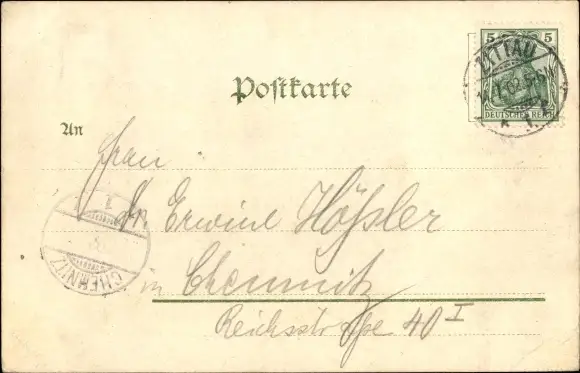 5 5
ZITTAU
DEUTSCHES REICH
Postkarte
An
Frau
Dr. Erwine Hößler
in Chemnitz
Reichsstraße 40 I
CHEMNITZ